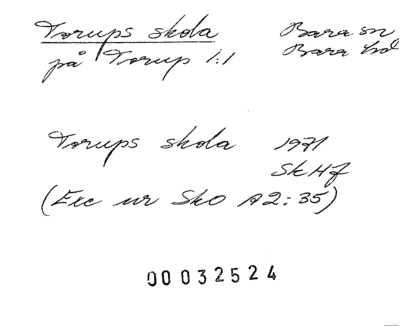 Torups skola Bara sn
på Torup 1:1 Bara hd
Torups skola 1971
SkHf
(Exc ur SkO A2:35)
00032524